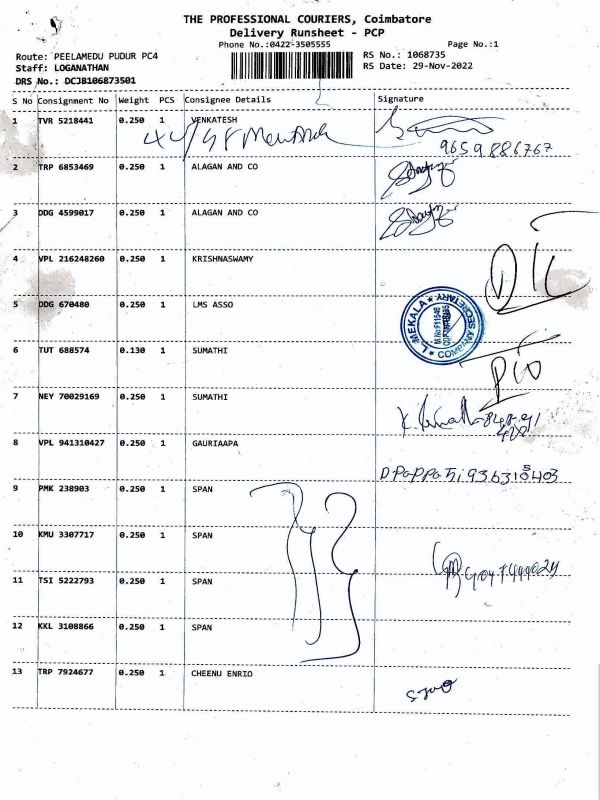 THE PROFESSIONAL COURIERS, Coimbatore
Delivery Runsheet - PCP
Phone No.:0422-3505555
Page No.:1
Route: PEELAMEDU PUDUR PC4
RS No.: 1068735
Staff: LOGANATHAN
RS Date: 29-Nov-2022
DRS No.: DCJB106873501
S No Consignment No Weight PCS Consignee Details Signature
1 TVR 5218441 0.250 1 VENKATESH
9659886767
2 TRP 6853469 0.250 1 ALAGAN AND CO
3 DDG 4599017 0.250 1 ALAGAN AND CO
4 VPL 216248260 0.250 1 KRISHNASWAMY
5 DDG 670480 0.250 1 LMS ASSO
L. MEKALA COMPANY SECRETARY
6 TUT 688574 0.130 1 SUMATHI
7 NEY 70029169 0.250 1 SUMATHI
8 VPL 941310427 0.250 1 GAURIAAPA
9 PMK 238903 0.250 1 SPAN
10 KMU 3307717 0.250 1 SPAN
11 TSI 5222793 0.250 1 SPAN
12 KKL 3108866 0.250 1 SPAN
13 TRP 7924677 0.250 1 CHEENU ENRIO